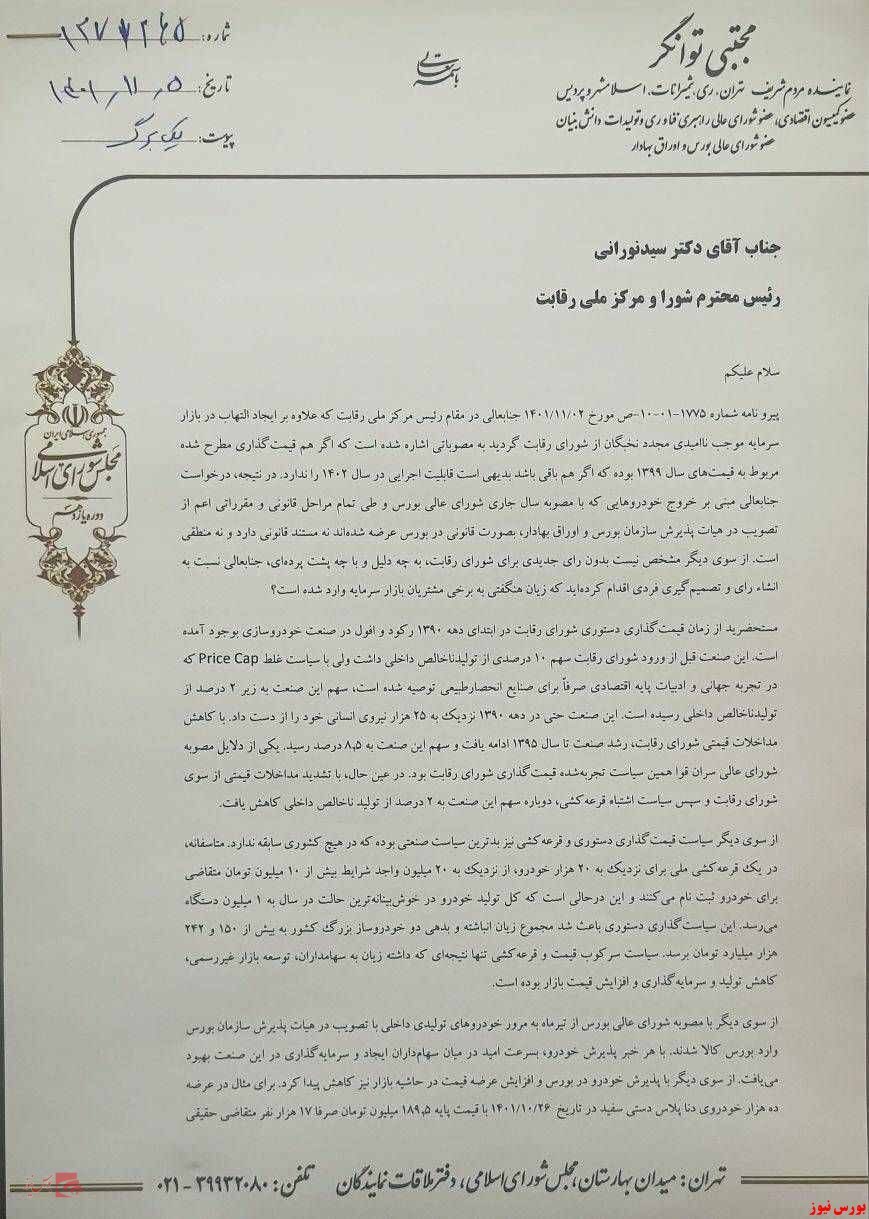 مجتبی توانگر
نماینده مردم شریف تهران، ری، شمیرانات، اسلامشهر و پردیس
عضو کمیسیون اقتصادی، عضو شورای عالی راهبری فناوری و تولیدات دانش بنیان
عضو شورای عالی بورس و اوراق بهادار
باسمه تعالی
شماره:
تاریخ: ۱۴۰۱/۱۱/۵
پیوست: یک برگ
جناب آقای دکتر سیدنورانی
رئیس محترم شورا و مرکز ملی رقابت
سلام علیکم
پیرو نامه شماره ۱۷۷۵-۰۱-۱۰-ص مورخ ۱۴۰۱/۱۱/۰۲ جنابعالی در مقام رئیس مرکز ملی رقابت که علاوه بر ایجاد التهاب در بازار
سرمایه موجب ناامیدی مجدد نخبگان از شورای رقابت گردید به مصوباتی اشاره شده است که اگر هم قیمت‌گذاری مطرح شده
مربوط به قیمت‌های سال ۱۳۹۹ بوده که اگر هم باقی باشد بدیهی است قابلیت اجرایی در سال ۱۴۰۲ را ندارد. در نتیجه، درخواست
جنابعالی مبنی بر خروج خودروهایی که با مصوبه سال جاری شورای عالی بورس و طی تمام مراحل قانونی و مقرراتی اعم از
تصویب در هیات پذیرش سازمان بورس و اوراق بهادار، بصورت قانونی در بورس عرضه شده‌اند نه مستند قانونی دارد و نه منطقی
است. از سوی دیگر مشخص نیست بدون رای جدیدی برای شورای رقابت، به چه دلیل و با چه پشت پرده‌ای، جنابعالی نسبت به
انشاء رای و تصمیم‌گیری فردی اقدام کرده‌اید که زیان هنگفتی به برخی مشتریان بازار سرمایه وارد شده است؟
مستحضرید از زمان قیمت‌گذاری دستوری شورای رقابت در ابتدای دهه ۱۳۹۰ رکود و افول در صنعت خودروسازی بوجود آمده
است. این صنعت قبل از ورود شورای رقابت سهم ۱۰ درصدی از تولیدناخالص داخلی داشت ولی با سیاست غلط Price Cap که
در تجربه جهانی و ادبیات پایه اقتصادی صرفاً برای صنایع انحصارطبیعی توصیه شده است، سهم این صنعت به زیر ۲ درصد از
تولیدناخالص داخلی رسیده است. این صنعت حتی در دهه ۱۳۹۰ نزدیک به ۲۵ هزار نیروی انسانی خود را از دست داد. با کاهش
مداخلات قیمتی شورای رقابت، رشد صنعت تا سال ۱۳۹۵ ادامه یافت و سهم این صنعت به ۸٫۵ درصد رسید. یکی از دلایل مصوبه
شورای عالی سران قوا همین سیاست تجربه‌شده قیمت‌گذاری شورای رقابت بود. در عین حال، با تشدید مداخلات قیمتی از سوی
شورای رقابت و سپس سیاست اشتباه قرعه‌کشی، دوباره سهم این صنعت به ۲ درصد از تولید ناخالص داخلی کاهش یافت.
از سوی دیگر سیاست قیمت‌گذاری دستوری و قرعه‌کشی نیز بدترین سیاست صنعتی بوده که در هیچ کشوری سابقه ندارد. متاسفانه،
در یک قرعه‌کشی ملی برای نزدیک به ۲۰ هزار خودرو، از نزدیک به ۲۰ میلیون واجد شرایط بیش از ۱۰ میلیون تومان متقاضی
برای خودرو ثبت نام می‌کنند و این درحالی است که کل تولید خودرو در خوش‌بینانه‌ترین حالت در سال به ۱ میلیون دستگاه
می‌رسد. این سیاست‌گذاری دستوری باعث شد مجموع زیان انباشته و بدهی دو خودروساز بزرگ کشور به بیش از ۱۵۰ و ۲۴۲
هزار میلیارد تومان برسد. سیاست سرکوب قیمت و قرعه‌کشی تنها نتیجه‌ای که داشته زیان به سهامداران، توسعه بازار غیررسمی،
کاهش تولید و سرمایه‌گذاری و افزایش قیمت بازار بوده است.
از سوی دیگر با مصوبه شورای عالی بورس از تیرماه به مرور خودروهای تولیدی داخلی با تصویب در هیات پذیرش سازمان بورس
وارد بورس کالا شدند. با هر خبر پذیرش خودرو، بسرعت امید در میان سهام‌داران ایجاد و سرمایه‌گذاری در این صنعت بهبود
می‌یافت. از سوی دیگر با پذیرش خودرو در بورس و افزایش عرضه قیمت در حاشیه بازار نیز کاهش پیدا کرد. برای مثال در عرضه
ده هزار خودروی دنا پلاس دستی سفید در تاریخ ۱۴۰۱/۱۰/۲۶ با قیمت پایه ۱۸۹٫۵ میلیون تومان صرفا ۱۷ هزار نفر متقاضی حقیقی
جمهوری اسلامی ایران
مجلس شورای اسلامی
دوره یازدهم
تهران: میدان بهارستان، مجلس شورای اسلامی، دفتر ملاقات نمایندگان تلفن: ۳۹۹۳۲۰۸۰-۰۲۱
بورس نیوز